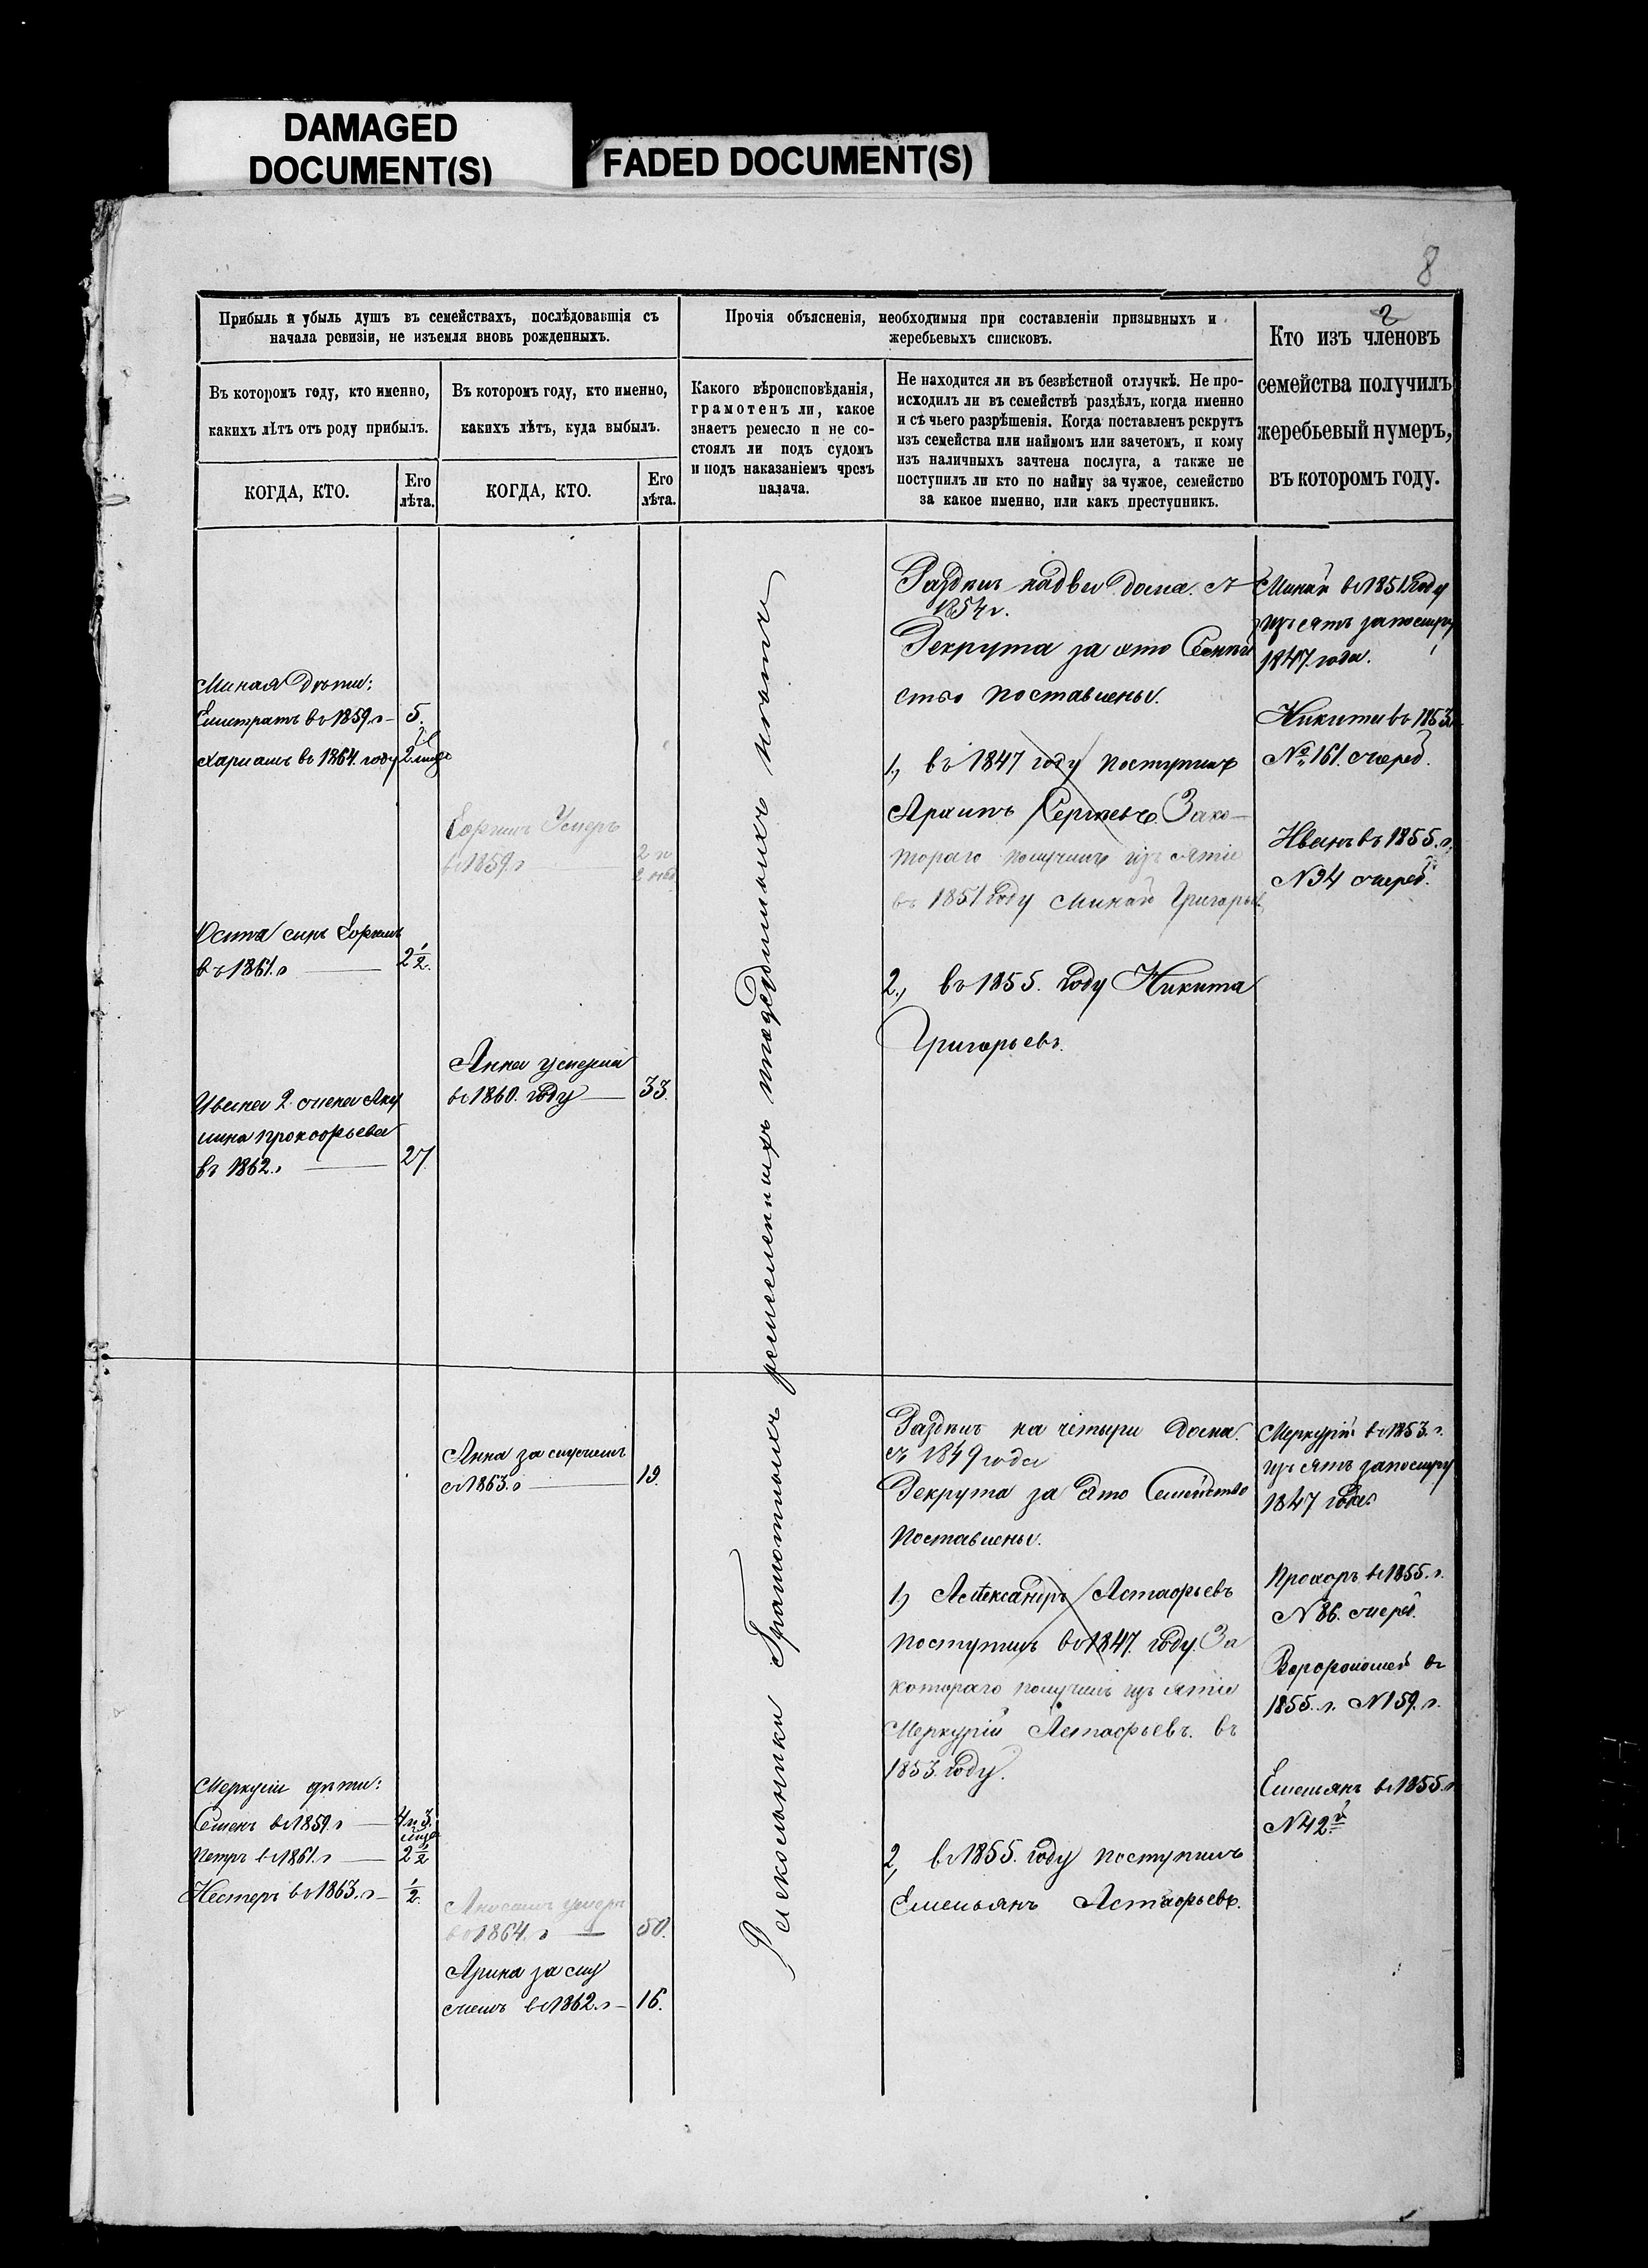 DAMAGED
DOCUMENT(S)
FADED DOCUMENT(S)
8
2
Прибыль и убыль душъ въ семействахъ, послѣдовавшія съ
начала ревизіи, не изъемля вновь рожденныхъ.
Прочія объясненія, необходимыя при составленіи призывныхъ и
жеребьевыхъ списковъ.
Кто изъ членовъ
семейства получилъ
жеребьевый нумеръ,
въ которомъ году.
Въ которомъ году, кто именно,
какихъ лѣтъ отъ роду прибылъ.
Въ которомъ году, кто именно,
какихъ лѣтъ, куда выбылъ.
Какого вѣроисповѣданія,
грамотенъ ли, какое
знаетъ ремесло и не со-
стоялъ ли подъ судомъ
и подъ наказаніемъ чрезъ
палача.
Не находится ли въ безвѣстной отлучкѣ. Не про-
исходилъ ли въ семействѣ раздѣлъ, когда именно
и съ чьего разрѣшенія. Когда поставленъ рекрутъ
изъ семейства или наймомъ или зачетомъ, и кому
изъ наличныхъ зачтена послуга, а также не
поступилъ ли кто по найму за чужое, семейство
за какое именно, или какъ преступникъ.
КОГДА, КТО.
Его
лѣта.
КОГДА, КТО.
Его
лѣта.
Миная дѣти:
Елистратъ въ 1859. г. 5.
въ 1864. году 2
Умеръ
въ 1859. г.
Осипа сынъ
въ 1861. г. 2 1/2.
Анна умерла
въ 1860. году 33.
Ивана 2. жена Аку
лина Прокофьева
въ 1862. г. 27
Раскольники Грамотныхъ ремесленныхъ
Раздѣлъ на два дома. съ
1854 г.
Рекрута за это Семей
ство поставлены.
1., въ 1847 году поступилъ
Сергѣевъ За ко-
тораго получилъ изъятіе
въ 1851 году Минай Григорьев
2., въ 1855. году Никита
Григорьевъ.
Минай въ 1851 году
изъятъ за послугу
1847 года.
Никита въ 1853
№ 161. очеред.
Иванъ въ 1855. г.
N 94 очеред.
Анна за мужемъ
съ 1863. г. 19.
Раздѣлъ на четыри дома.
съ 1849 года
Рекрута за это Семейство
поставлены.
1., Александръ Астафьевъ
поступилъ въ 1847. году. За
котораго получилъ изъятіе
Меркурій Астафьевъ. въ
1853. году.
2, въ 1855. году поступилъ
Емельянъ Астафьевъ.
Меркурій въ 1853. г.
изъятъ за послугу
1847 года
Прохоръ въ 1855. г.
N 86. очеред.
въ
1855. г. N 159. г.
Емельянъ въ 1855. г
N 42й
Меркурія дѣти:
Семенъ въ 1859. г. 4 и 3.
Петръ въ 1861. г. 2 1/2
Нестеръ въ 1863. г. 1/2.
умеръ
въ 1864. г. 50.
Арина за му
жемъ въ 1862. г. 16.